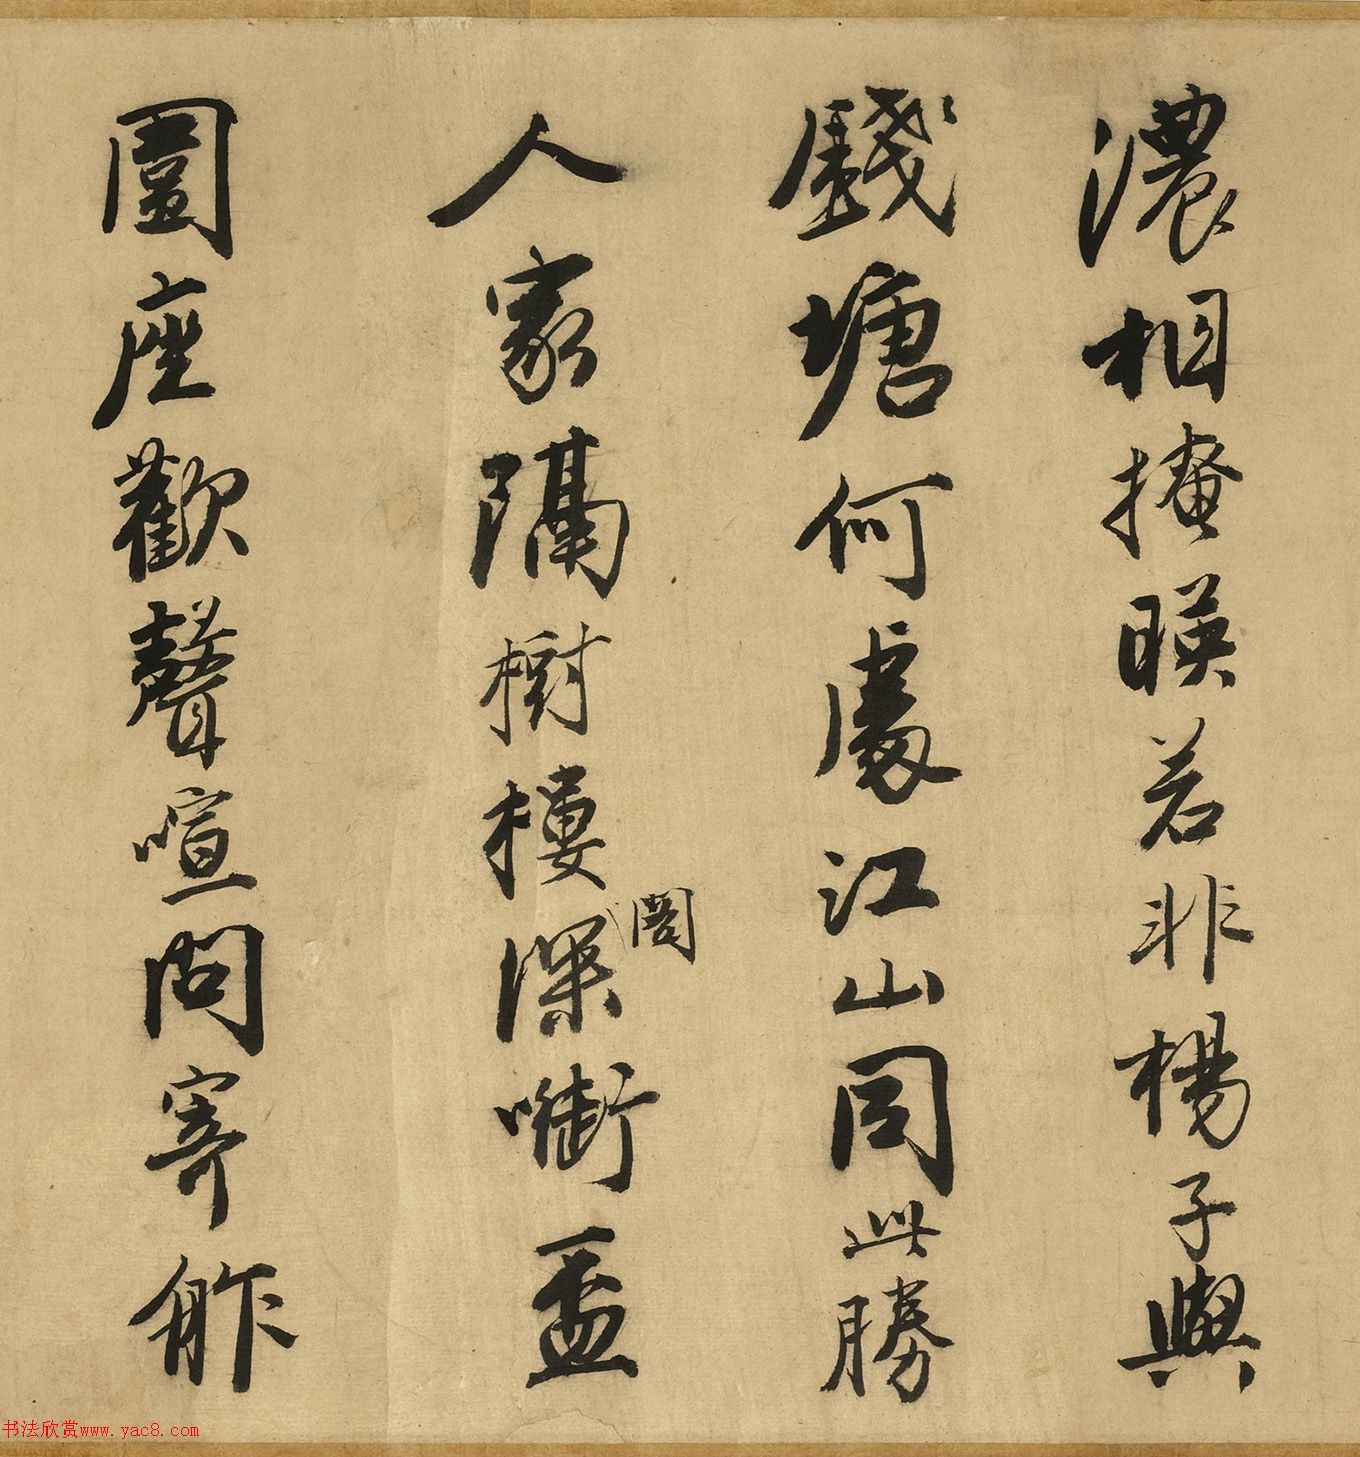 濃相掩暎若非楊子與
錢塘何處江山同此勝
人家隔樹樓閣深啣盃
座歡聲喧問寄舴
书法欣赏www.yac8.com